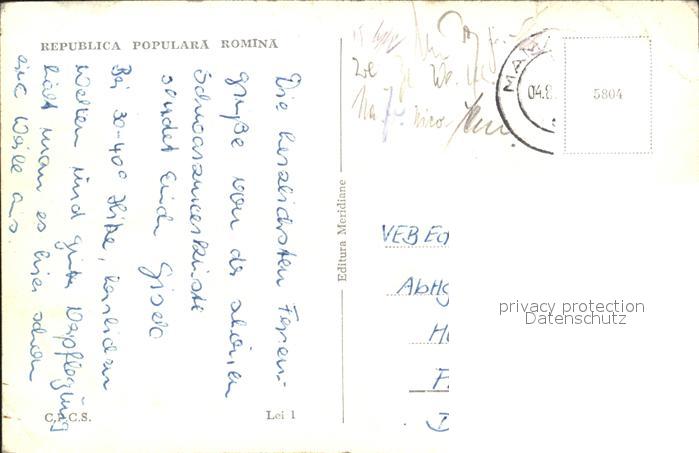 REPUBLICA POPULARĂ ROMÎNĂ
Die herzlichsten Ferien-
grüße von der schönen
Schwarzmeerküste
sendet Euch Gisela
Bei 30-40° Hitze, herrlichen
Wellen und guter Verpflegung
hält man es hier schon
eine Weile aus.
C.P.C.S.
Lei 1
Editura Meridiane
MA
04.8
5804
VEB
Abt
H
F
D
privacy protection
Datenschutz